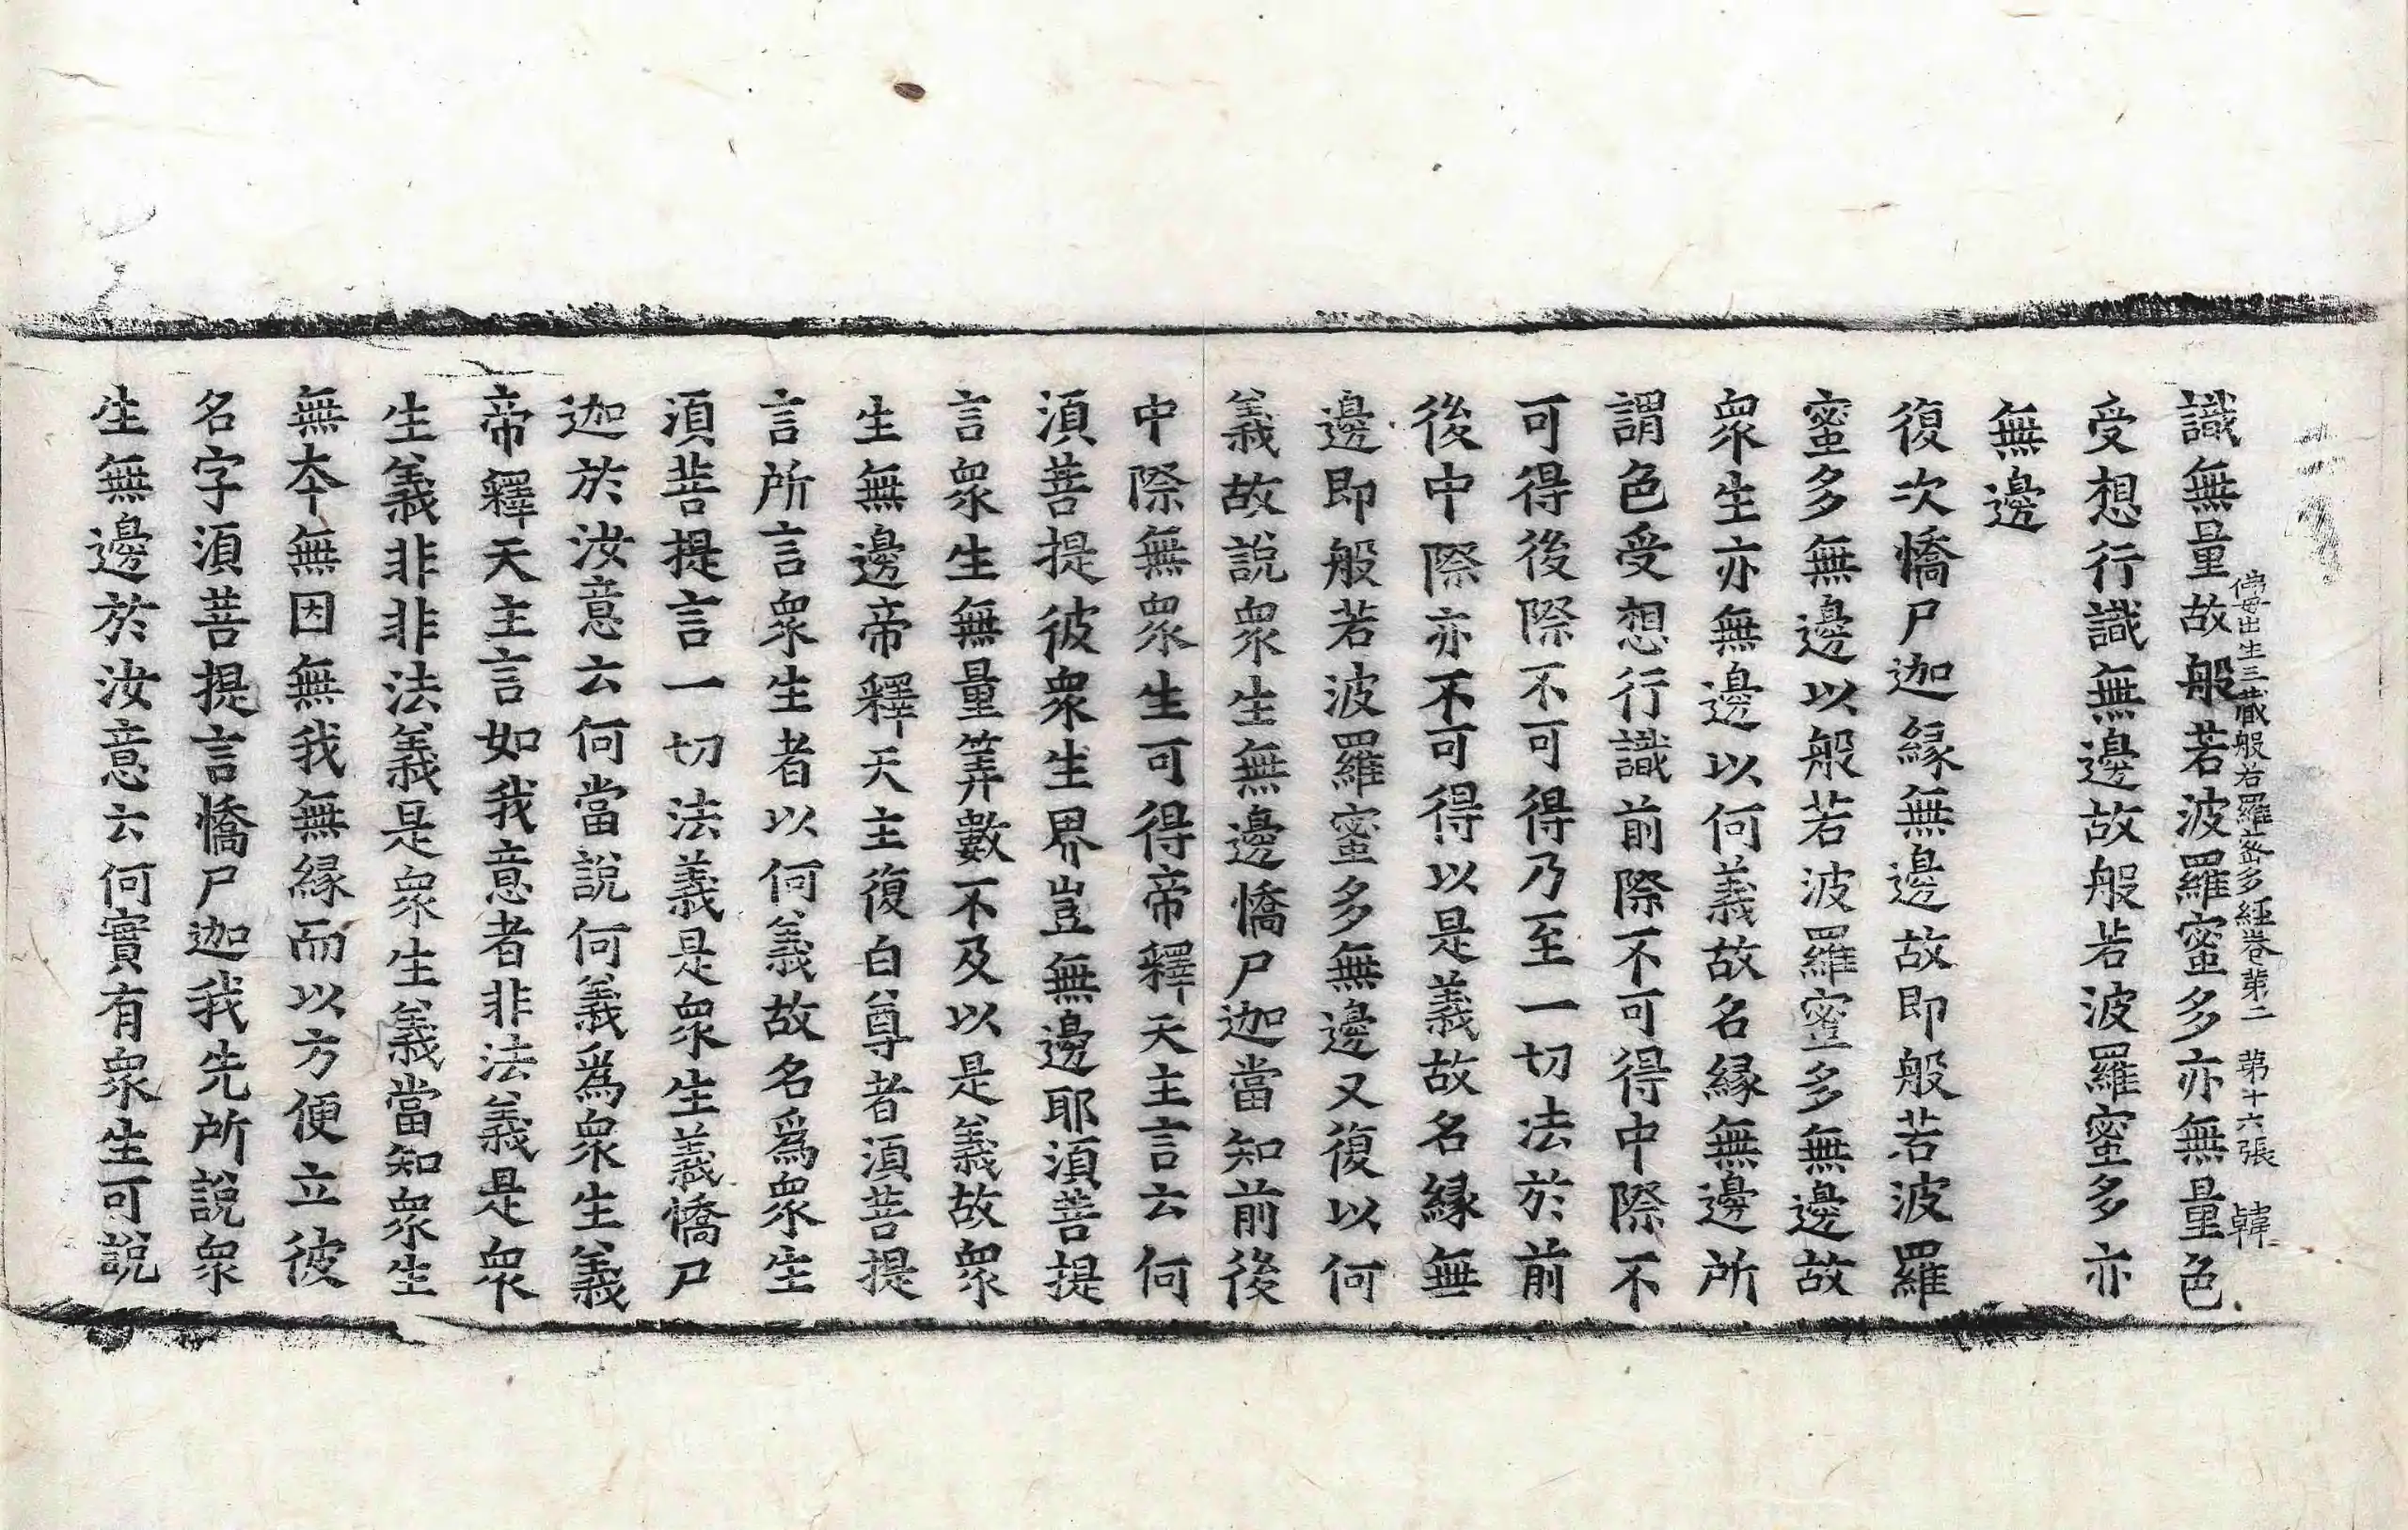 佛母出生三藏般若羅蜜多經卷第二 第十六張 韓
識無量故般若波羅蜜多亦無量色
受想行識無邊故般若波羅蜜多亦
無邊
復次憍尸迦緣無邊故即般若波羅
蜜多無邊以般若波羅蜜多無邊故
衆生亦無邊以何義故名緣無邊所
謂色受想行識前際不可得中際不
可得後際不可得乃至一切法於前
後中際亦不可得以是義故名緣無
邊即般若波羅蜜多無邊又復以何
義故說衆生無邊憍尸迦當知前後
中際無衆生可得帝釋天主言云何
須菩提彼衆生界豈無邊耶須菩提
言衆生無量筭數不及以是義故衆
生無邊帝釋天主復白尊者須菩提
言所言衆生者以何義故名爲衆生
須菩提言一切法義是衆生義憍尸
迦於汝意云何當說何義爲衆生義
帝釋天主言如我意者非法義是衆
生義非非法義是衆生義當知衆生
無本無因無我無緣而以方便立彼
名字須菩提言憍尸迦我先所說衆
生無邊於汝意云何實有衆生可說